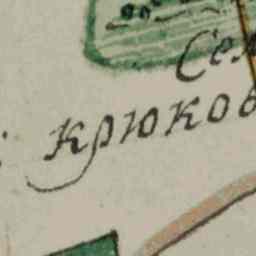 Сел
крюков